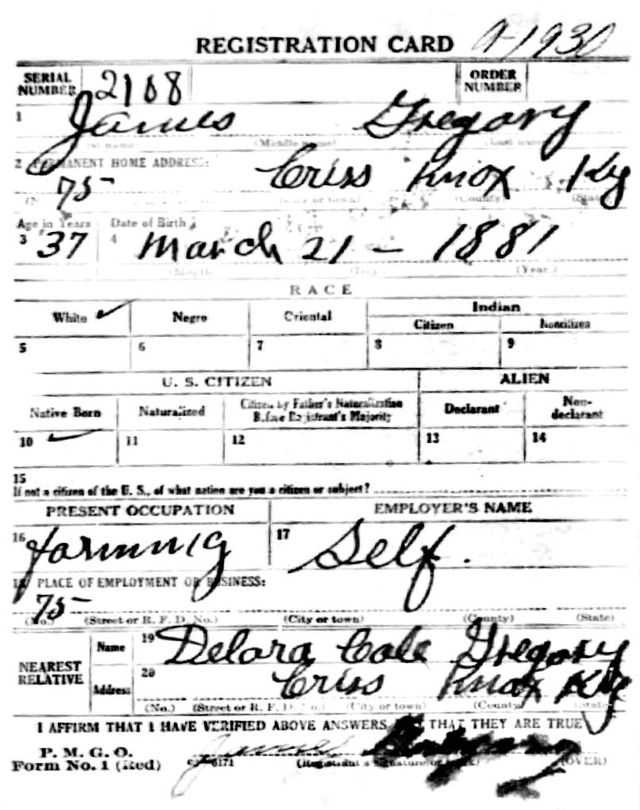 REGISTRATION CARD A-1930
SERIAL NUMBER 2168 ORDER NUMBER
1 James Gregory
(Middle name)
2 PERMANENT HOME ADDRESS:
75 Criss Knox Ky
(City or town) (County) (State)
Age in Years Date of Birth
3 37 4 March 21 - 1881
(Month) (Day) (Year)
RACE
White ✓ Negro Oriental Indian
Citizen Noncitizen
5 6 7 8 9
U. S. CITIZEN ALIEN
Native Born Naturalized Citizen by Father's Naturalization Before Registrant's Majority Declarant Non-declarant
10 ✓ 11 12 13 14
15
If not a citizen of the U. S., of what nation are you a citizen or subject?
PRESENT OCCUPATION EMPLOYER'S NAME
16 farming 17 Self.
18 PLACE OF EMPLOYMENT OR BUSINESS:
75
(No.) (Street or R. F. D. No.) (City or town) (County) (State)
NEAREST RELATIVE
Name 19 Delora Cole Gregory
Address 20 Criss Knox Ky
(No.) (Street or R. F. D. No.) (City or town) (County) (State)
I AFFIRM THAT I HAVE VERIFIED ABOVE ANSWERS THAT THEY ARE TRUE
P. M. G. O.
Form No. 1 (Red) 6171 James (Registrant's signature or mark) (OVER)